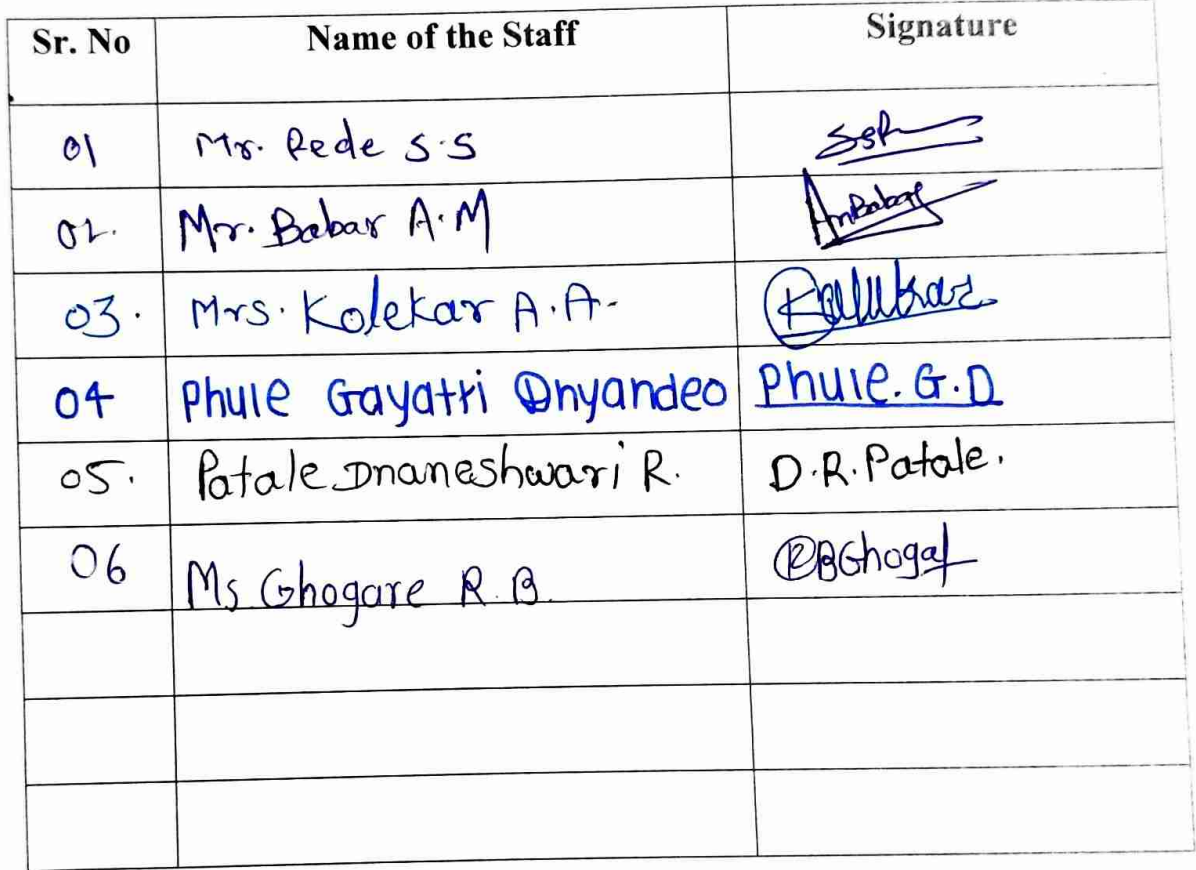 Sr. No Name of the Staff Signature
01 Mr. Rede S.S SSR
02. Mr. Babar A.M AmBabar
03. Mrs. Kolekar A.A. Kolekar
04 Phule Gayatri Dnyandeo Phule. G.D
05. Patale Dnaneshwari R. D.R. Patale.
06 Ms Ghogare R.B. RBGhogar